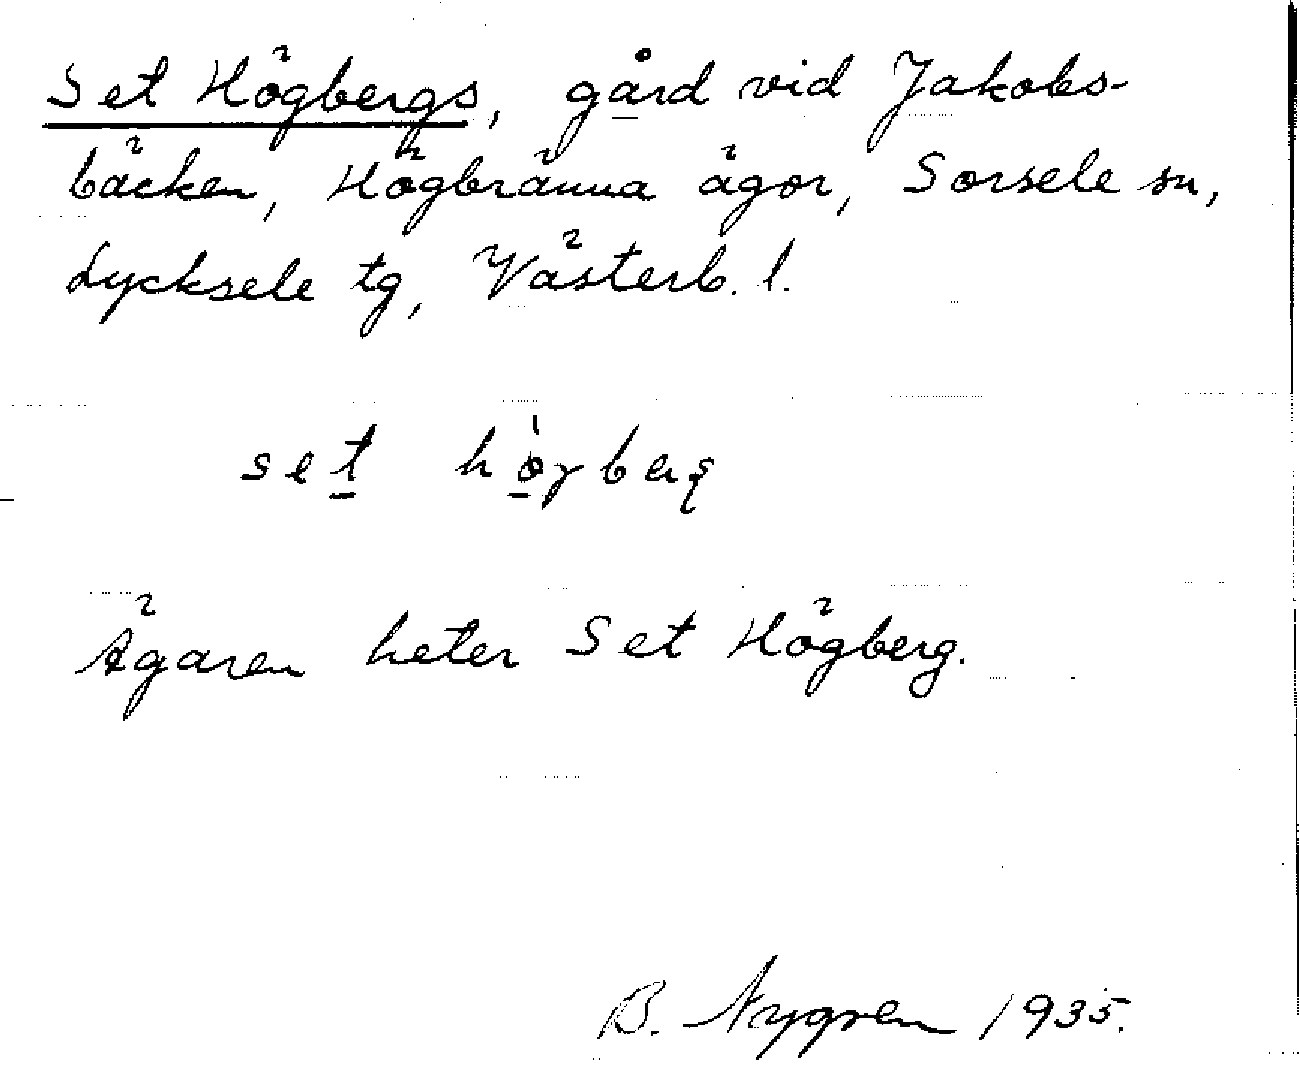 Set Högbergs, gård vid Jakobs-
bäcken, Högbränna ägor, Sorsele sn,
Lycksele tg, Västerb. l.
set högbers
Ägaren heter Set Högberg.
B. Nygren 1935.